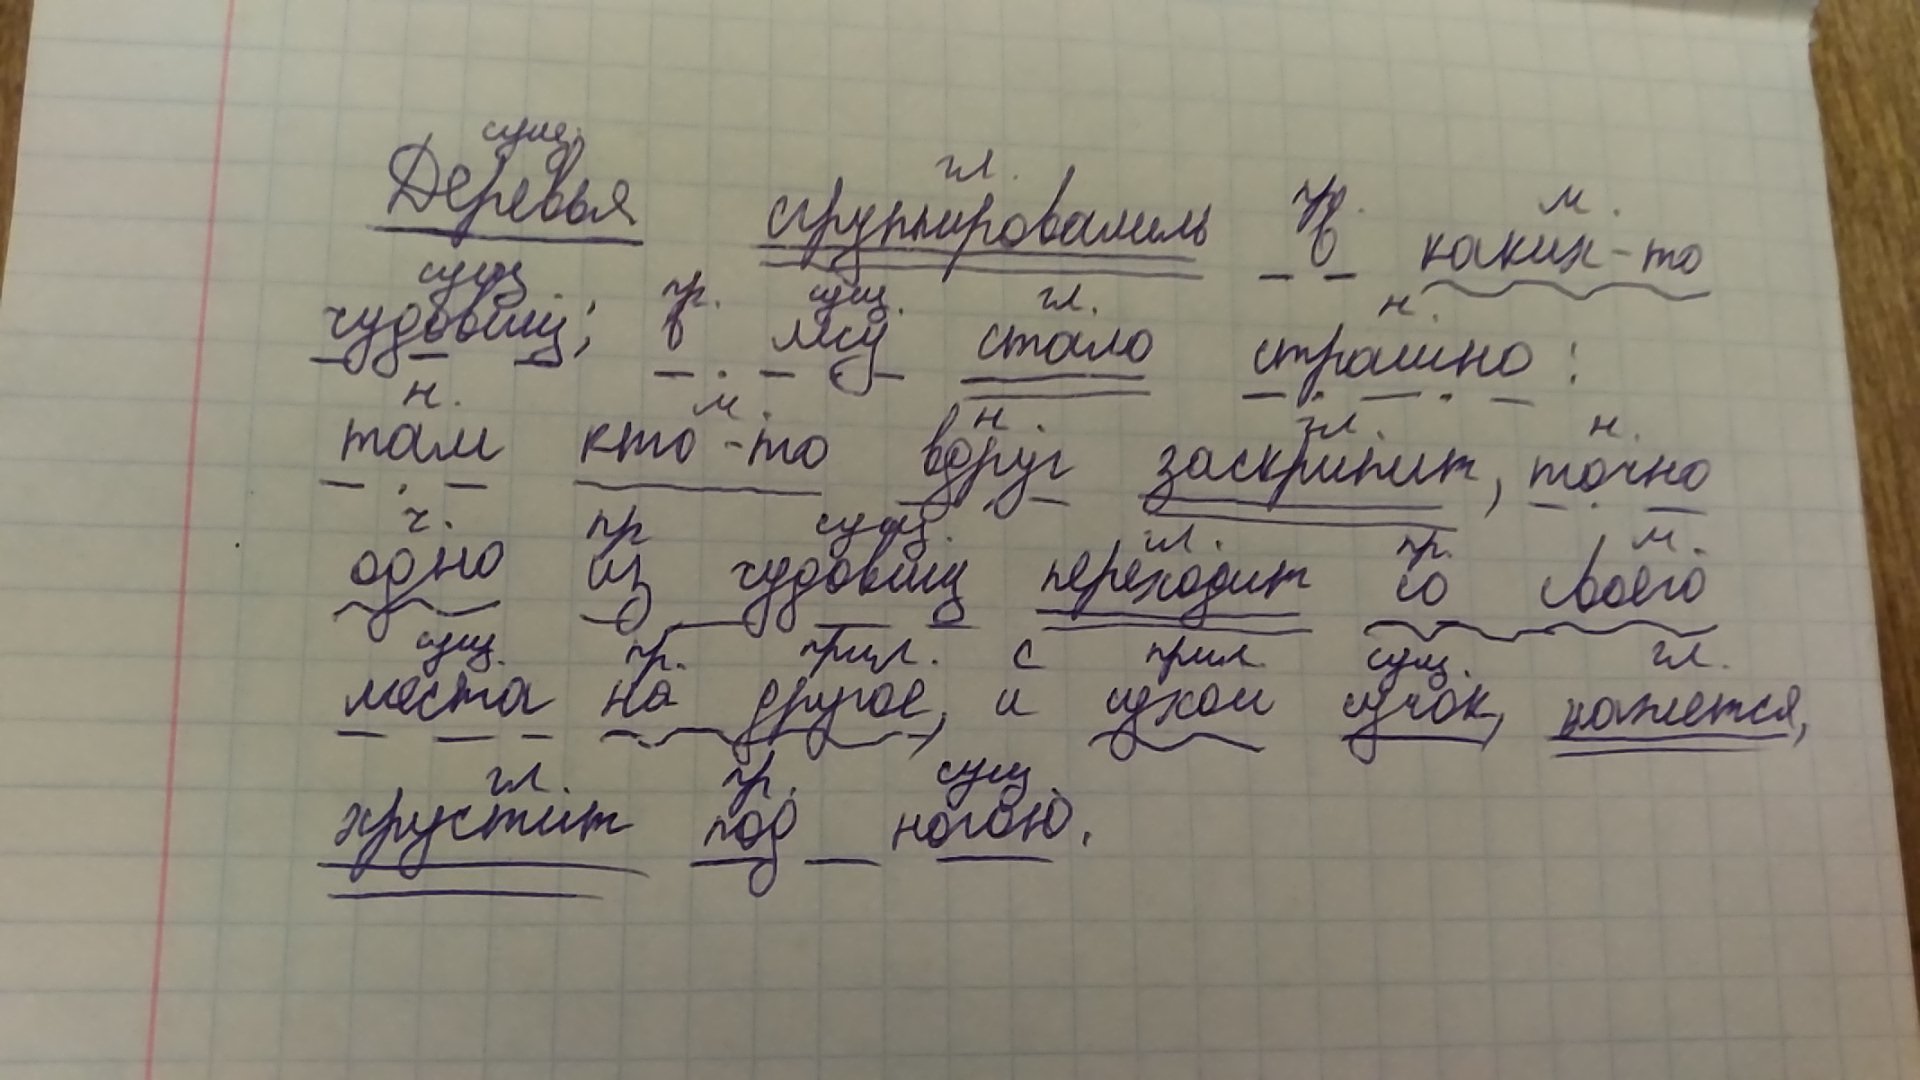 сущ.
Деревья сгруппировались в каких-то
гл. пр. м.
сущ пр. сущ. гл. н.
чудовищ; в лесу стало страшно:
н. м. н. гл. н.
там кто-то вдруг заскрипит, точно
ч. пр сущ. гл. пр. м.
одно из чудовищ переходит со своего
сущ. пр. прил. с прил. сущ. гл.
места на другое, и сухой сучок, кажется,
гл. пр. сущ.
хрустит под ногою.